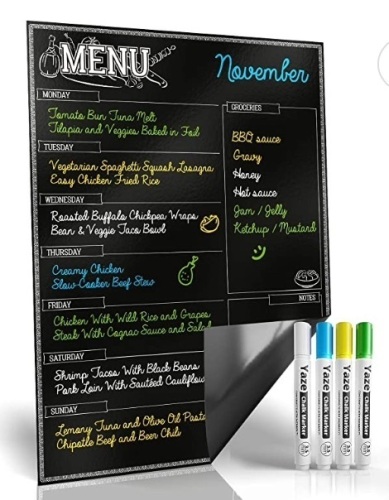 MENU
November
MONDAY
Tomato Bun Tuna Melt
Tilapia and Veggies Baked in Foil
TUESDAY
Vegetarian Spaghetti Squash Lasagna
Easy Chicken Fried Rice
WEDNESDAY
Roasted Buffalo Chickpea Wraps
Bean & Veggie Taco Bowl
THURSDAY
Creamy Chicken
Slow-Cooker Beef Stew
FRIDAY
Chicken With Wild Rice and Grapes
Steak With Cognac Sauce and Salad
SATURDAY
Shrimp Tacos With Black Beans
Pork Loin With Sautéed Cauliflow
SUNDAY
Lemony Tuna and Olive Oil Pasta
Chipotle Beef and Beer Chili
GROCERIES
BBQ sauce
Gravy
Honey
Hot sauce
Jam / Jelly
Ketchup / Mustard
NOTES
Yaze Chalk Marker
Yaze Chalk Marker
Yaze Chalk Marker
Yaze Chalk Marker